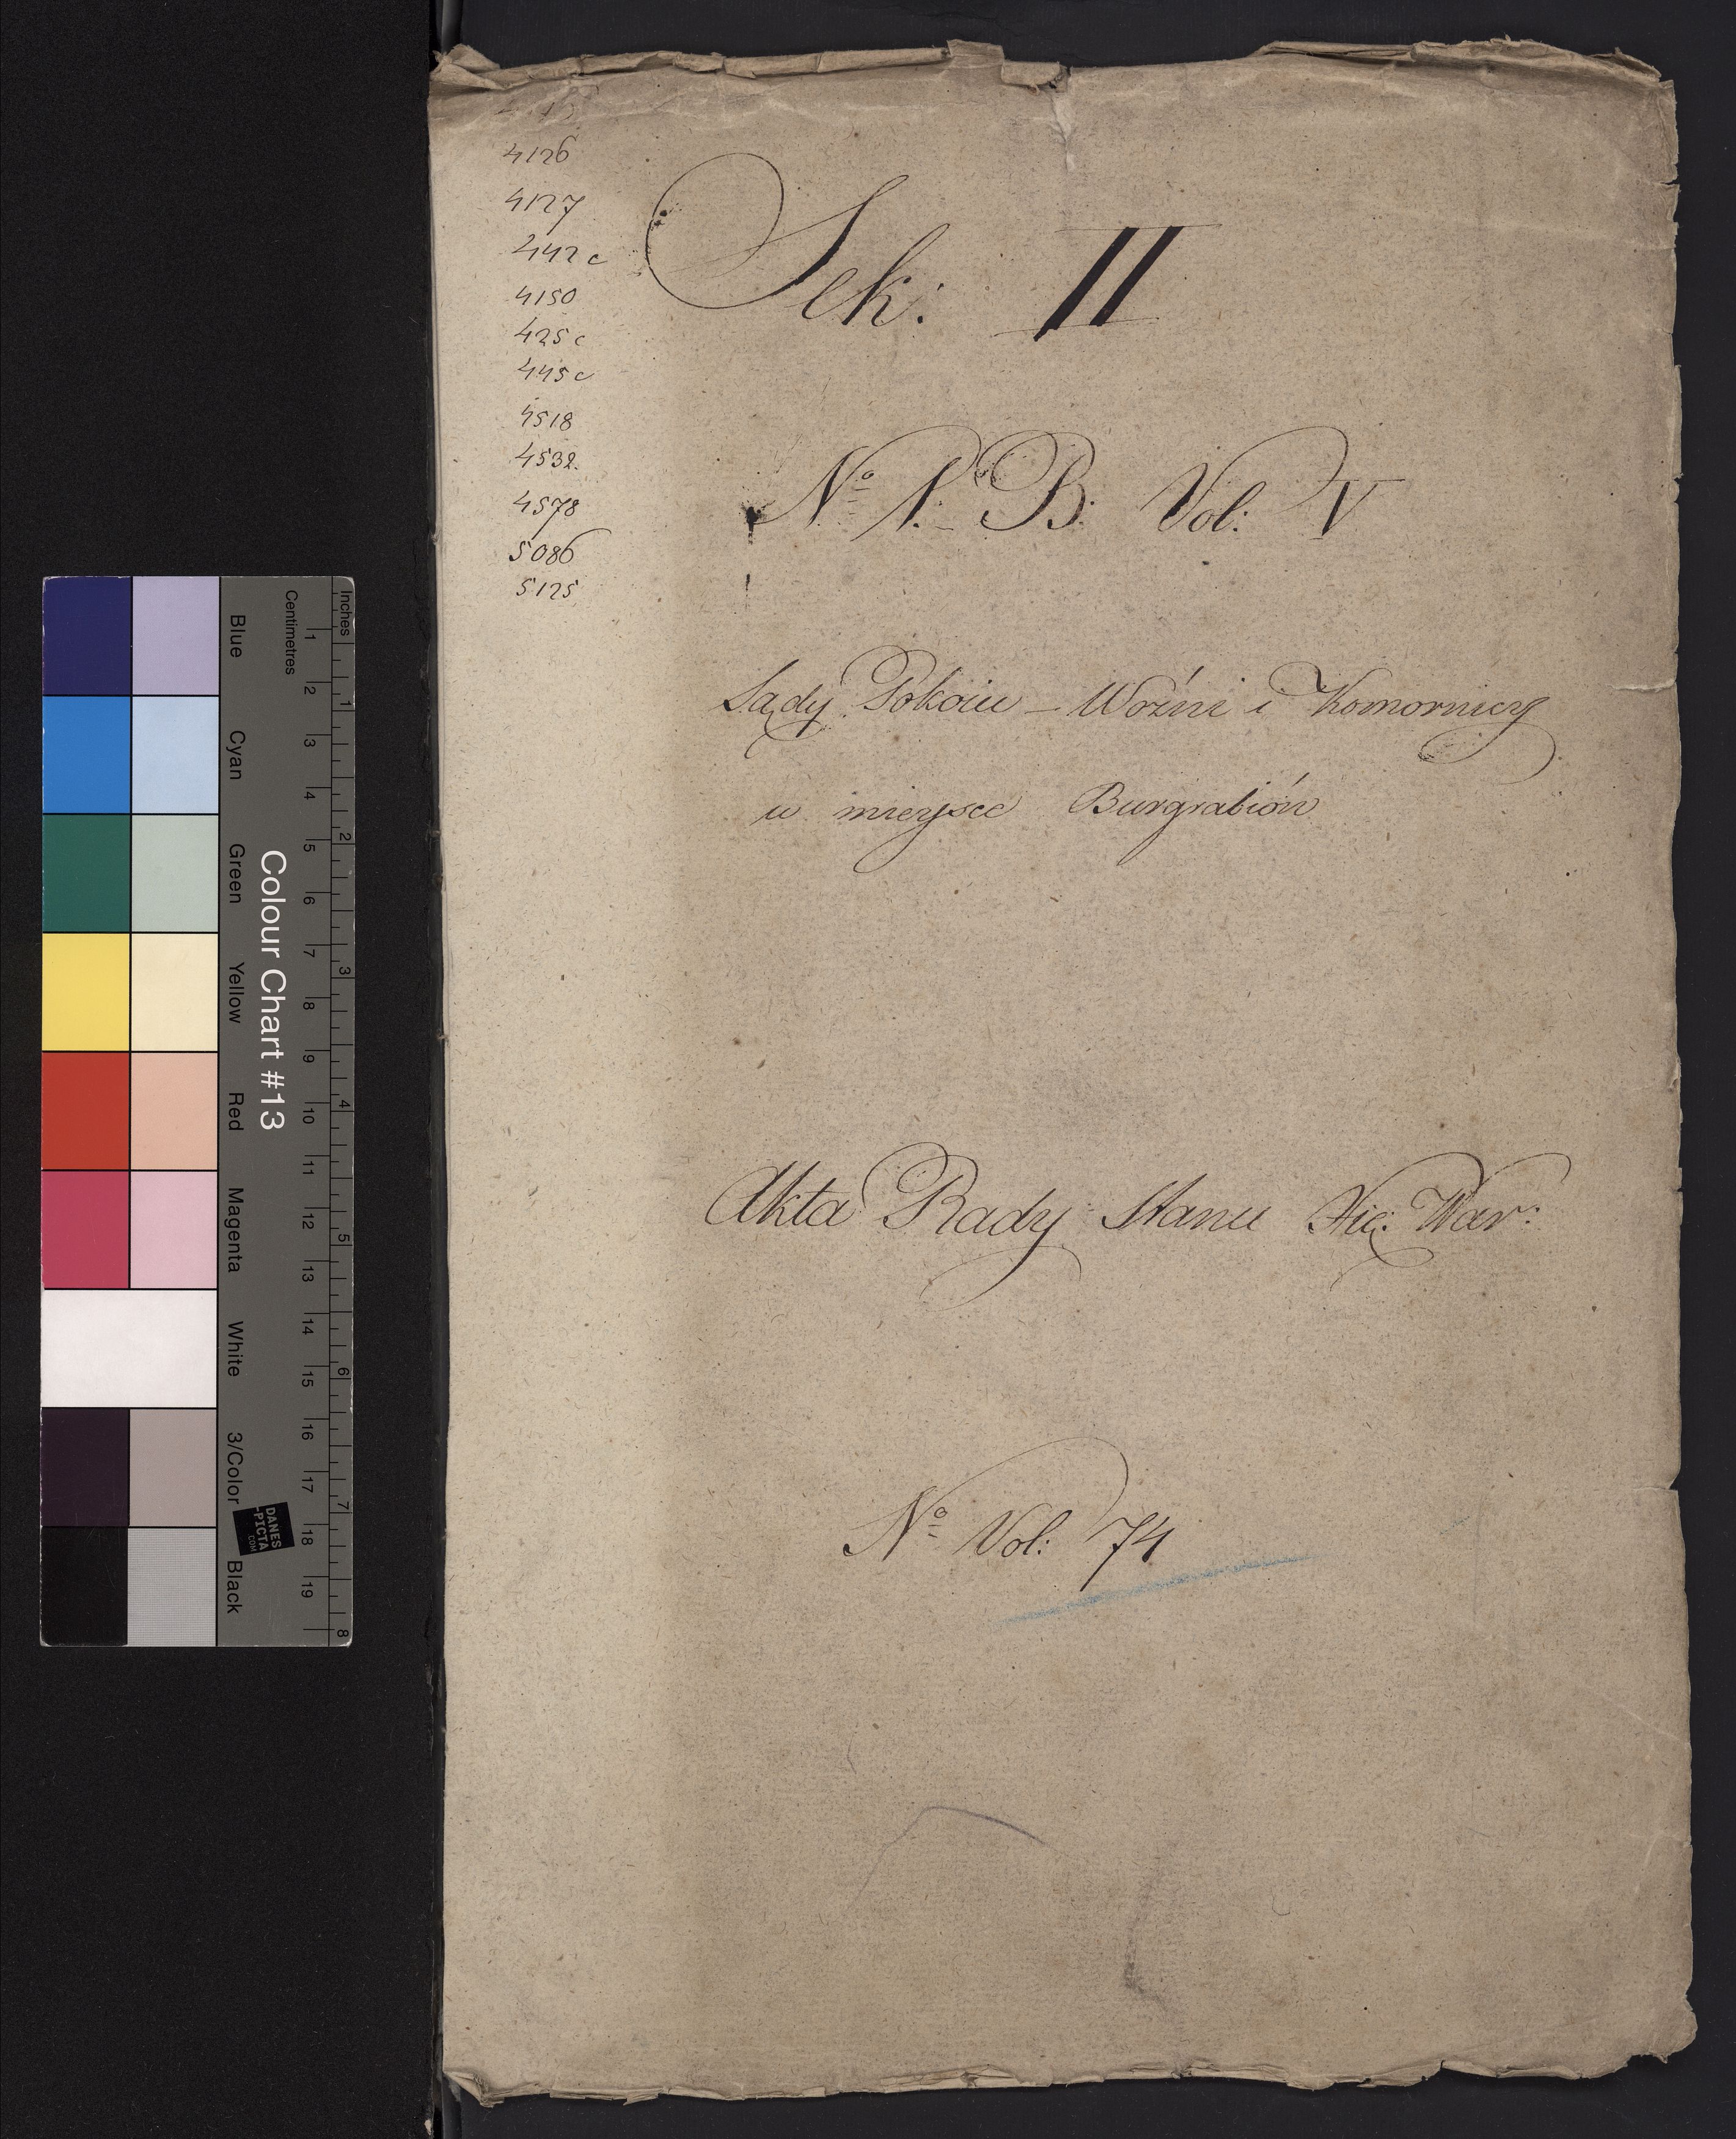 4126
4127
442 c
4150
425 c
445 c
4518
4532.
4578
5086
5125
Sek: II
No 1. B: Vol: V
Sądy Pokoiu – Woźni i Komornicy
w mieysce Burgrabiów
Akta Rady Stanu Xię: War:
No Vol: 74
Inches
Centimetres
Colour Chart #13
Blue
Cyan
Green
Yellow
Red
Magenta
White
3/Color
Black
DANES
PICTA
.COM
1 2 3 4 5 6 7 8 9 10 11 12 13 14 15 16 17 18 19
1 2 3 4 5 6 7 8